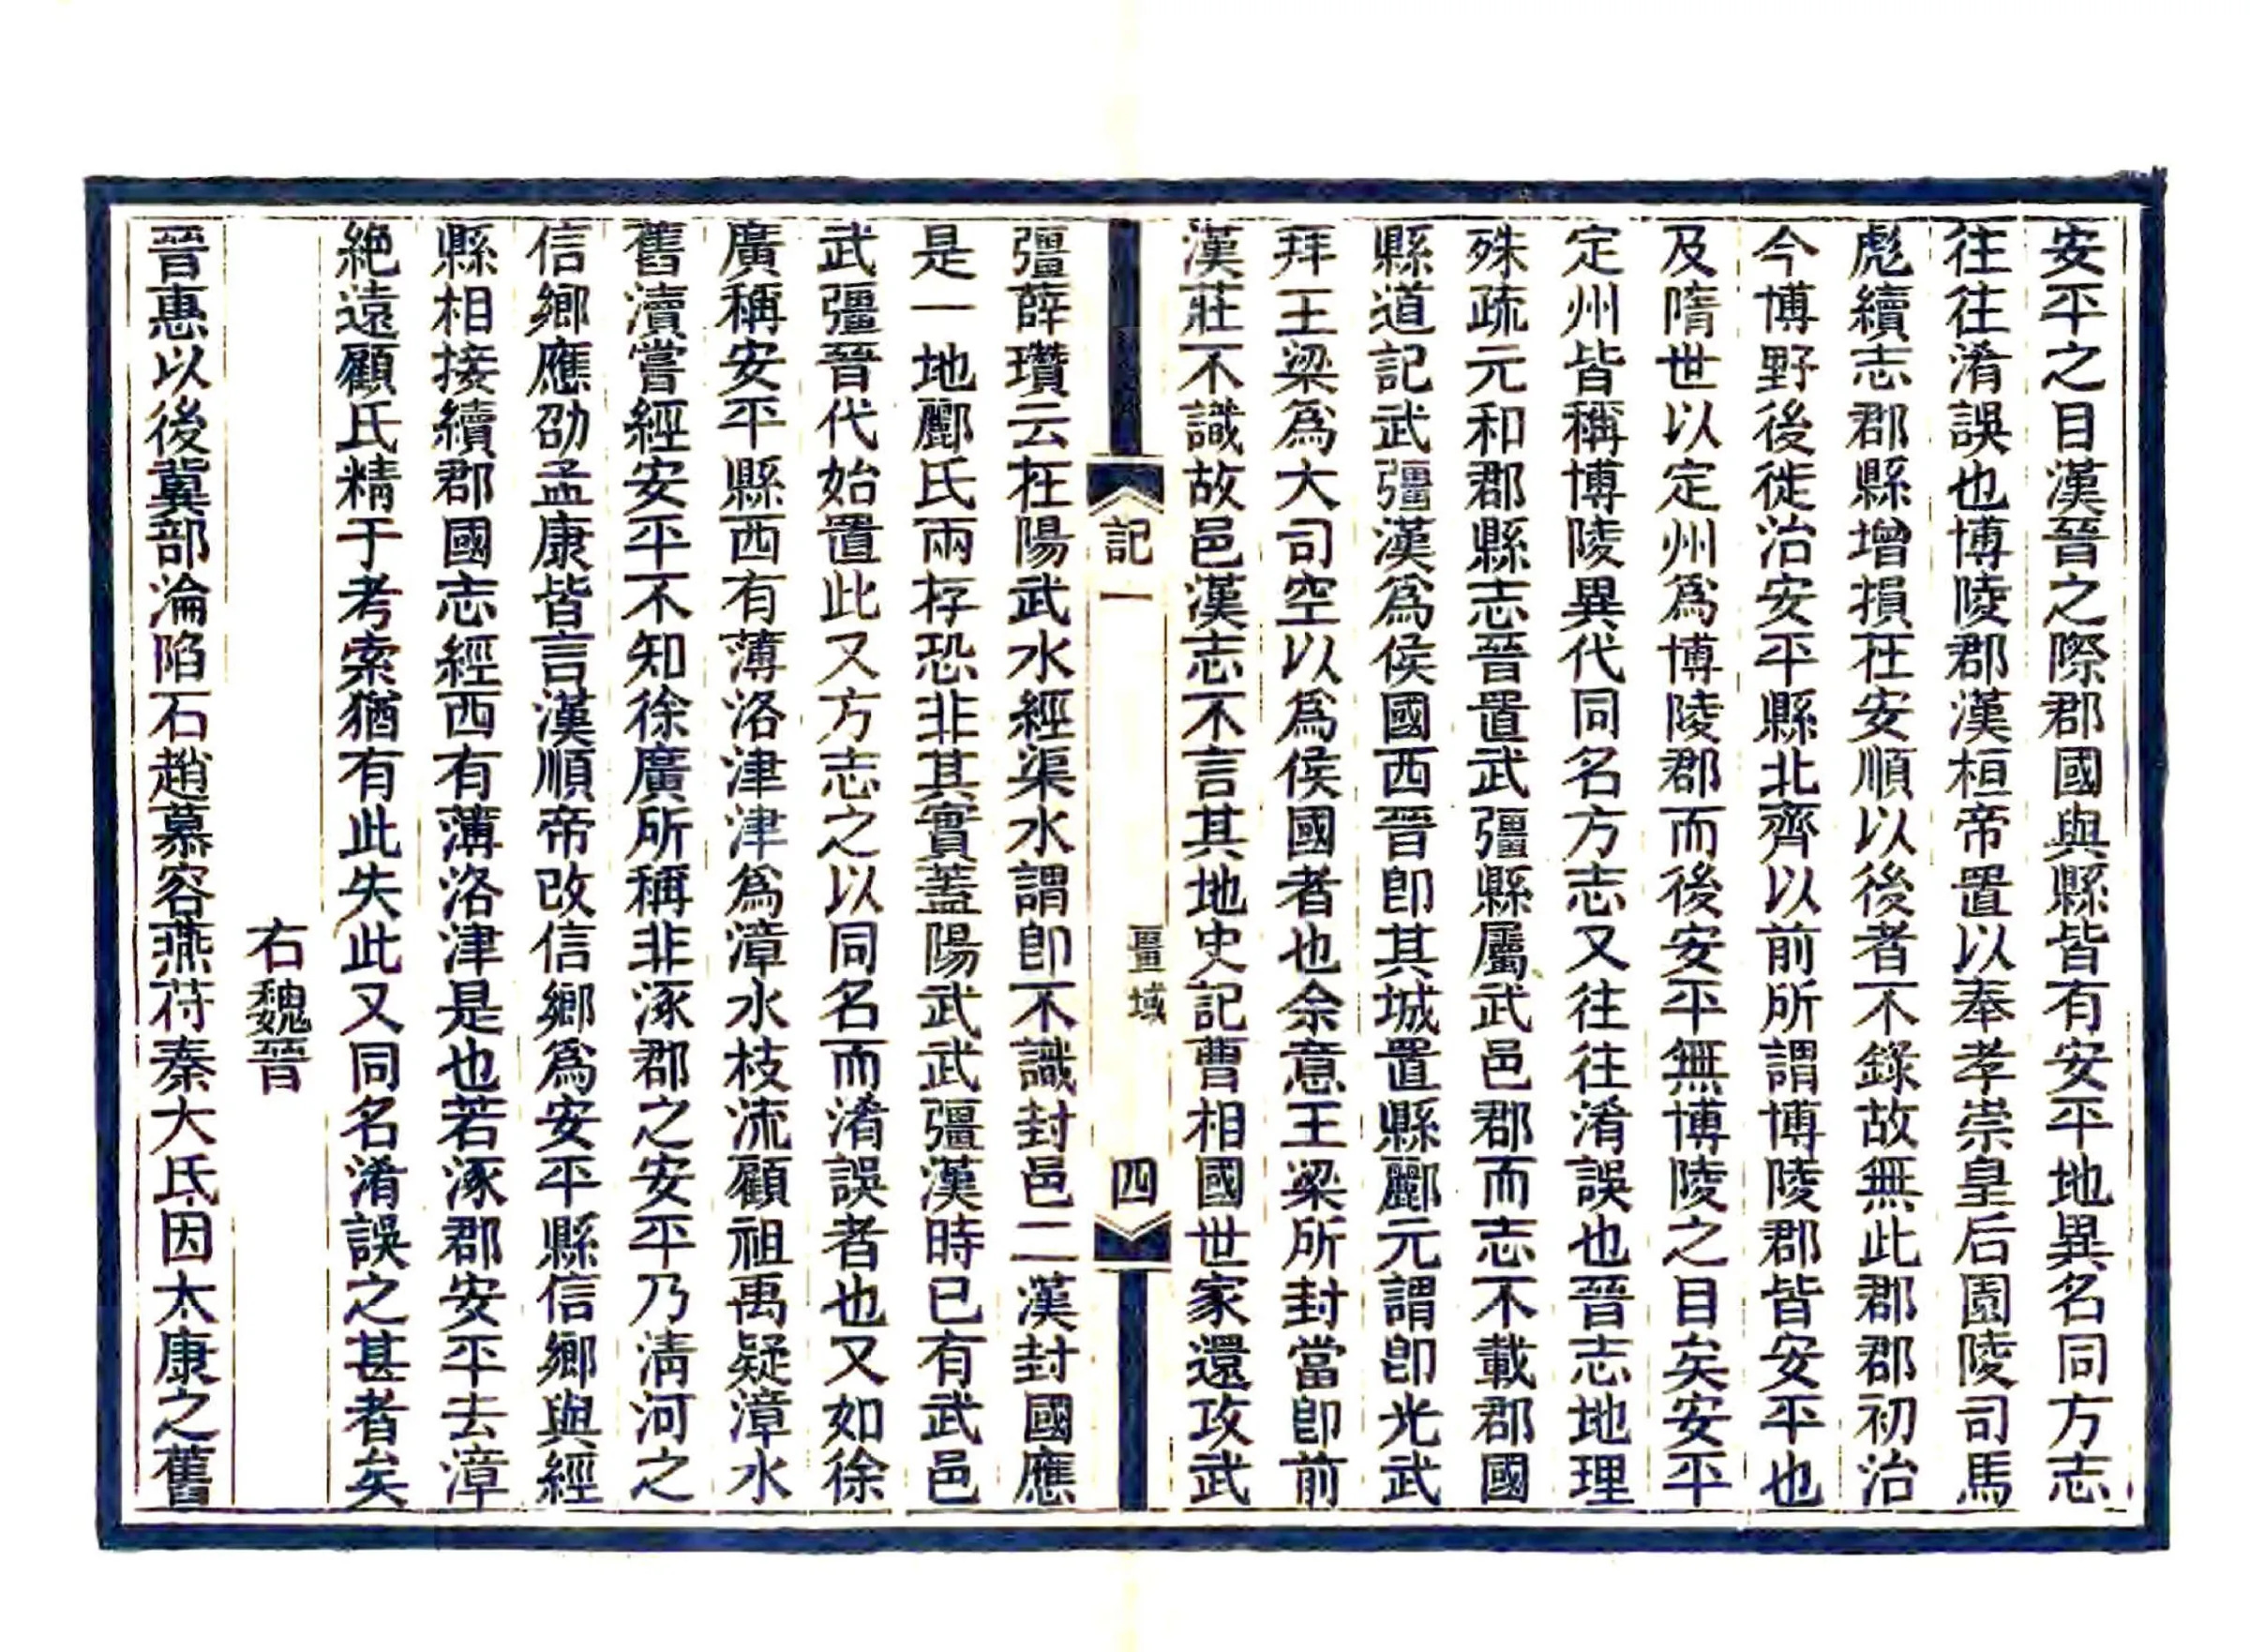 安平之目漢晉之際郡國與縣皆有安平地異名同方志
往往淆誤也博陵郡漢桓帝置以奉孝崇皇后園陵司馬
彪續志郡縣增損在安順以後者不錄故無此郡郡初治
今博野後徙治安平縣北齊以前所謂博陵郡皆安平也
及隋世以定州爲博陵郡而後安平無博陵之目矣安平
定州皆稱博陵異代同名方志又往往淆誤也晉志地理
殊疏元和郡縣志晉置武彊縣屬武邑郡而志不載郡國
縣道記武彊漢爲侯國西晉卽其城置縣酈元謂卽光武
拜王梁爲大司空以爲侯國者也余意王梁所封當卽前
漢莊不識故邑漢志不言其地史記曹相國世家還攻武
記一
畺域
四
彊薛瓚云在陽武水經渠水謂卽不識封邑二漢封國應
是一地酈氏兩存恐非其實蓋陽武武彊漢時已有武邑
武彊晉代始置此又方志之以同名而淆誤者也又如徐
廣稱安平縣西有薄洛津津爲漳水枝流顧祖禹疑漳水
舊瀆嘗經安平不知徐廣所稱非涿郡之安平乃淸河之
信鄉應劭孟康皆言漢順帝改信鄉爲安平縣信鄉與經
縣相接續郡國志經西有薄洛津是也若涿郡安平去漳
絕遠顧氏精于考索猶有此失此又同名淆誤之甚者矣
右魏晉
晉惠以後冀部淪陷石趙慕容燕苻秦大氐因太康之舊